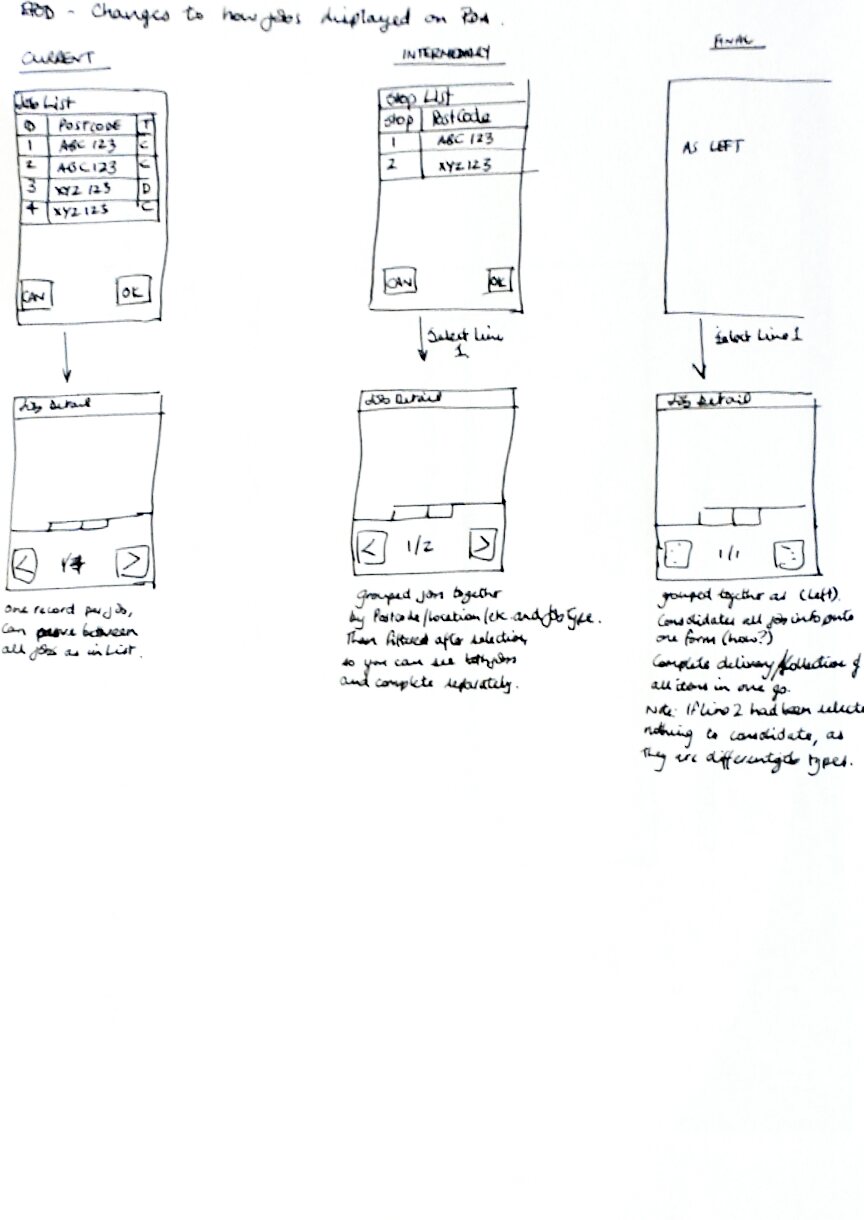 EPOD - Changes to how jobs displayed on PDA.
CURRENT
Job List
POSTCODE T
1 ABC 123 C
2 ABC 123 C
3 XYZ 123 D
4 XYZ 123 C
CAN OK
Job Detail
< >
One record per job,
can move between
all jobs as in List.
INTERMEDIARY
Stop List
Stop PostCode
1 ABC 123
2 XYZ 123
CAN OK
Select Line
1
Job Detail
< 1/2 >
grouped jobs together
by Postcode/location/etc and job type.
Then filtered after selection,
so you can see both jobs
and complete separately.
FINAL
AS LEFT
Select Line 1
Job Detail
1/1
grouped together as (left).
Consolidates all job info onto
one form (how?)
Complete delivery/collection of
all items in one go.
Note: If Line 2 had been selecte
nothing to consolidate, as
they are different job types.